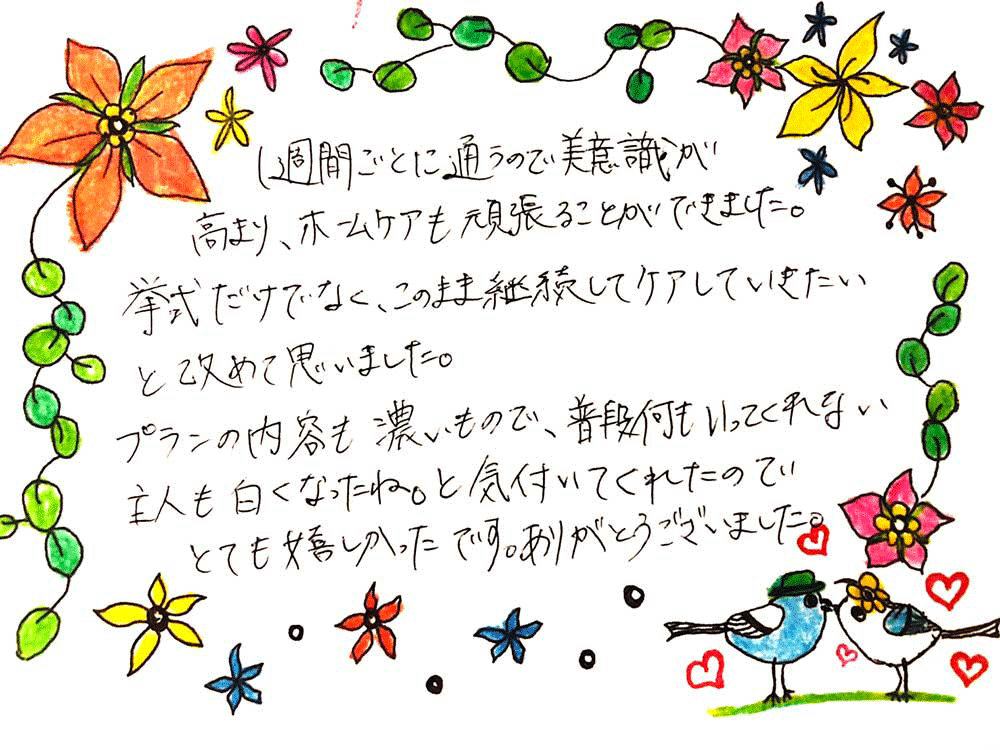 1週間ごとに通うので美意識が
高まり、ホームケアも頑張ることができました。
挙式だけでなく、このまま継続してケアしていきたい
と改めて思いました。
プランの内容も濃いもので、普段何もいってくれない
主人も白くなったね。と気付いてくれたので
とても嬉しかったです。ありがとうございました。